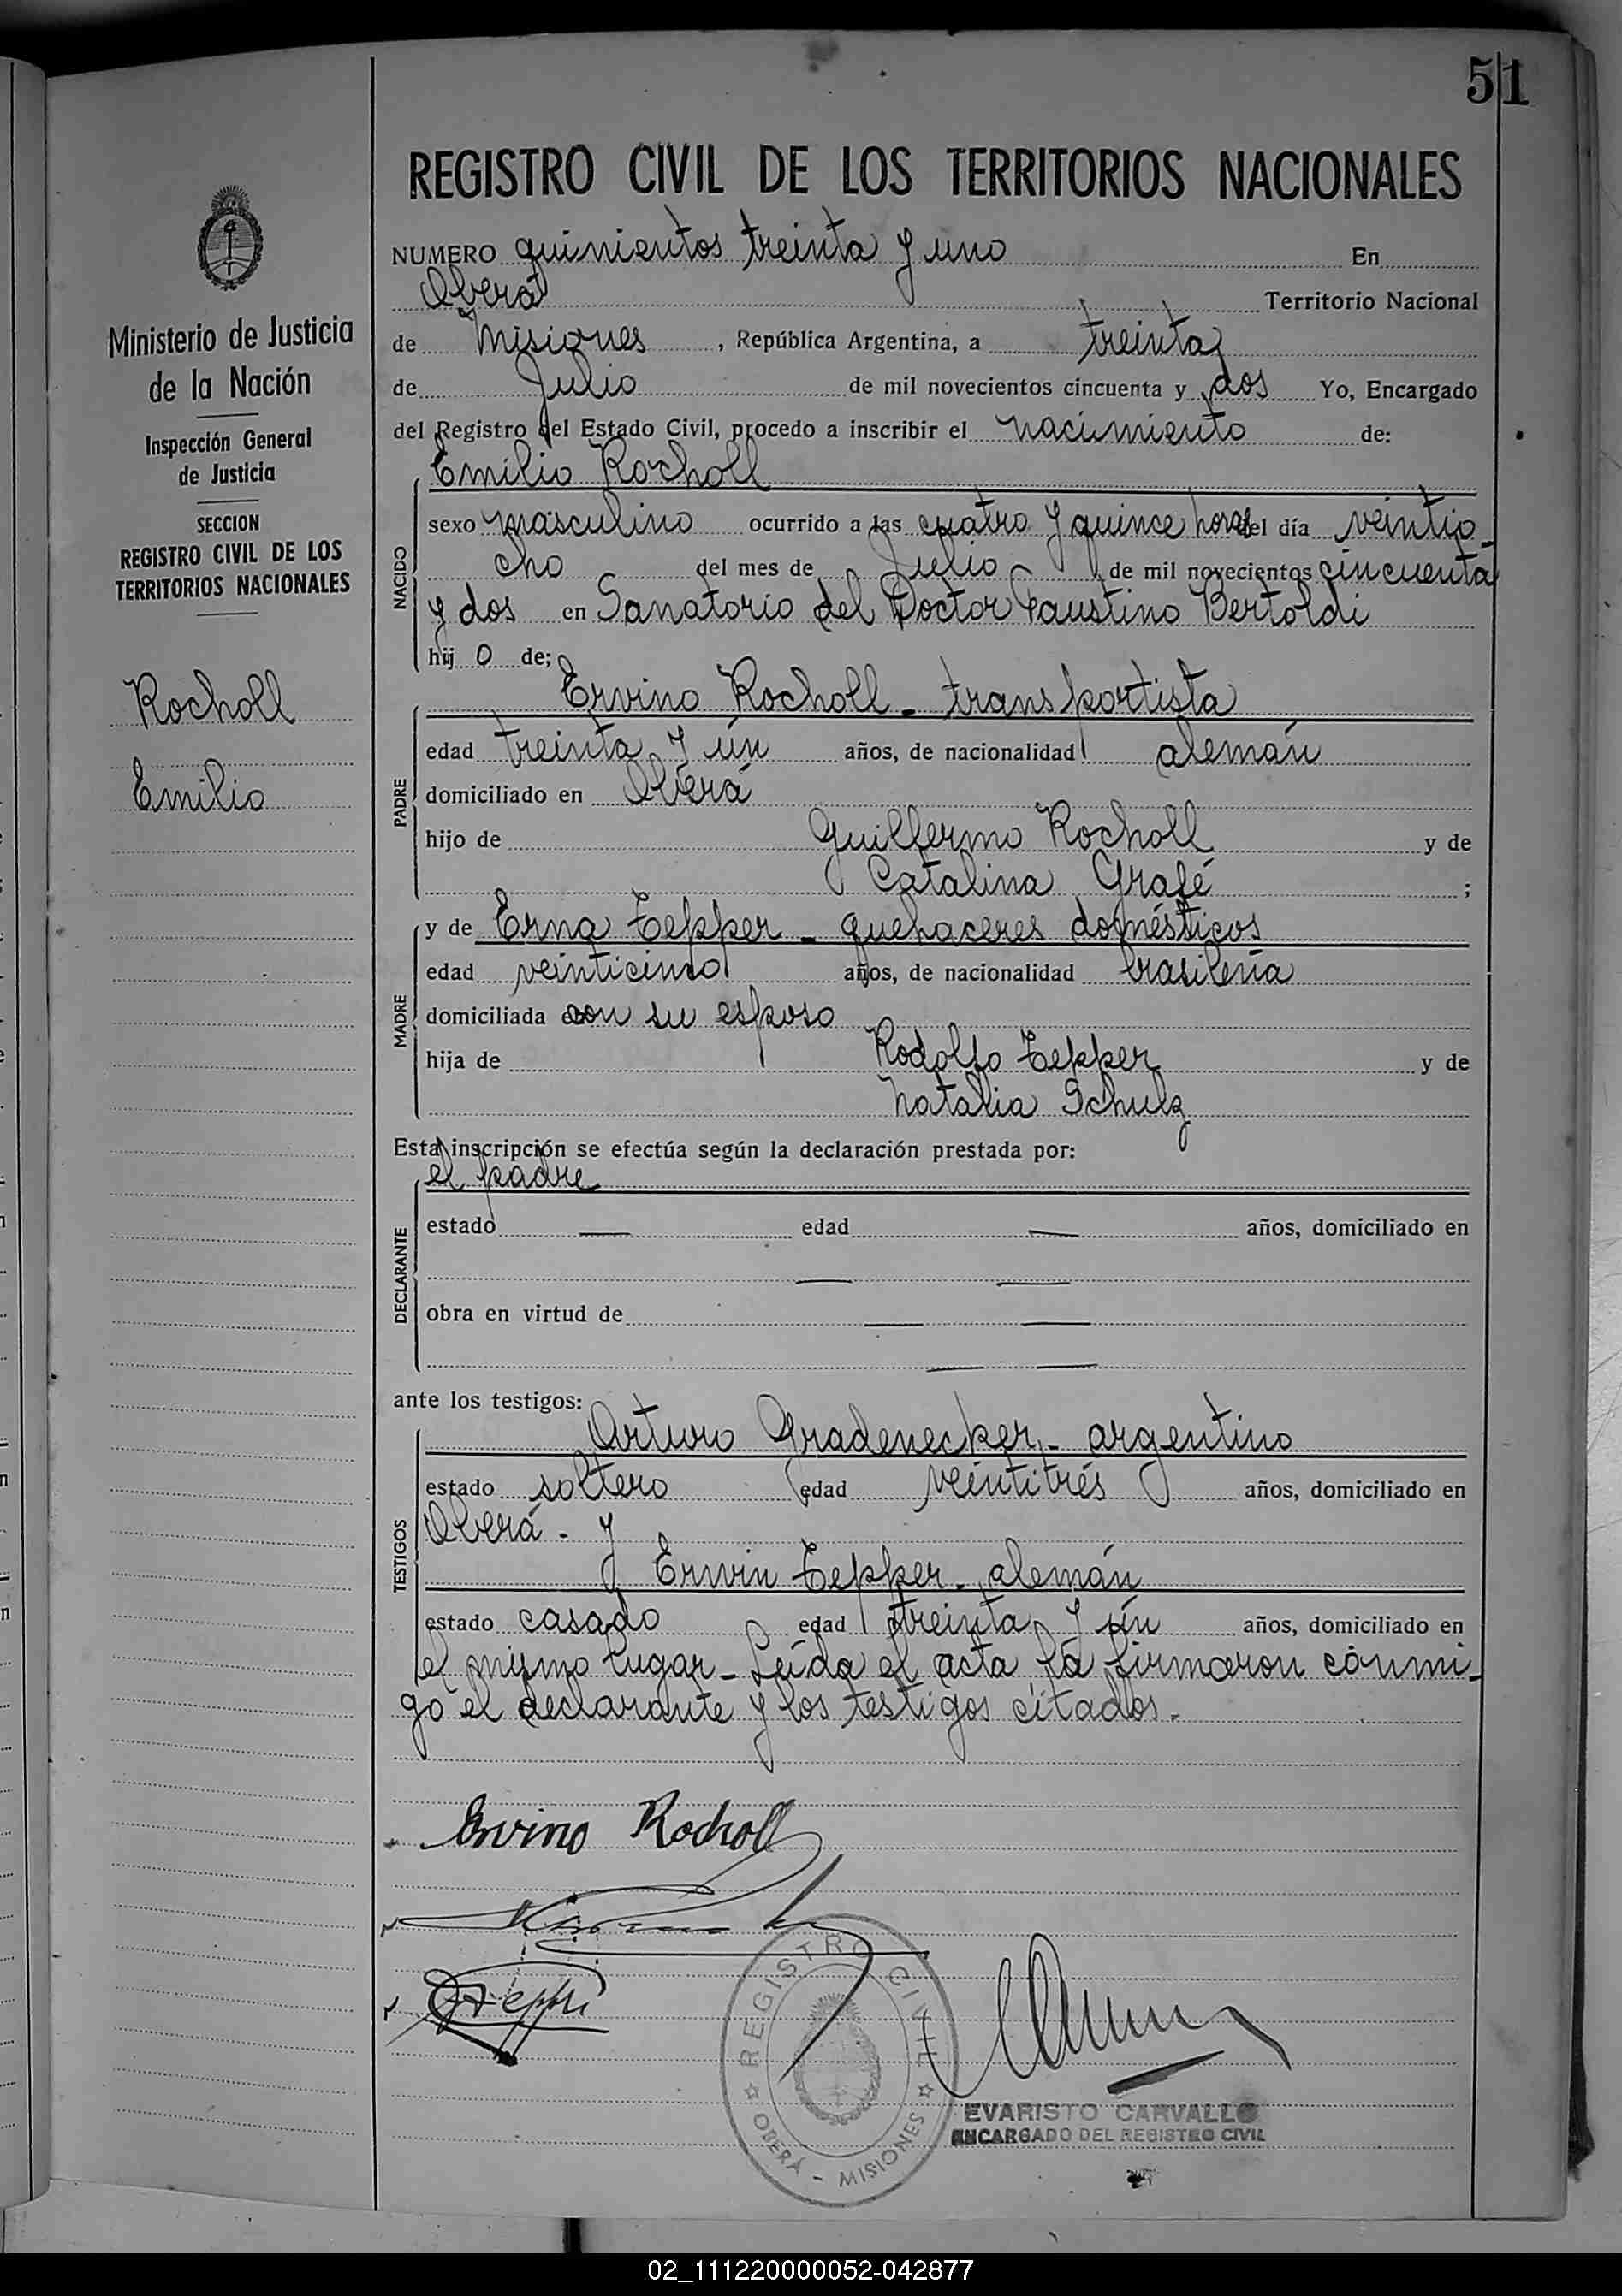 51
REGISTRO CIVIL DE LOS TERRITORIOS NACIONALES
NUMERO quinientos treinta y uno En
Oberá Territorio Nacional
de Misiones, República Argentina, a treinta
de Julio de mil novecientos cincuenta y dos Yo, Encargado
del Registro del Estado Civil, procedo a inscribir el nacimiento de:
Emilio Rocholl
NACIDO
sexo masculino ocurrido a las cuatro y quince horas del día veintio
cho del mes de Julio de mil novecientos cincuenta
y dos en Sanatorio del Doctor Faustino Bertoldi
hij o de;
Ervino Rocholl - transportista
PADRE
edad treinta y un años, de nacionalidad alemán
domiciliado en Oberá
hijo de Guillermo Rocholl y de
Catalina Grafé ;
y de Erna Tepper - quehaceres domésticos
MADRE
edad veinticinco años, de nacionalidad brasileña
domiciliada con su esposo
hija de Rodolfo Tepper y de
Natalia Schulz
Esta inscripción se efectúa según la declaración prestada por:
el padre
DECLARANTE
estado — edad — años, domiciliado en
— —
obra en virtud de — —
— —
ante los testigos:
Arturo Gradenecker - argentino
TESTIGOS
estado soltero edad veintitrés años, domiciliado en
Oberá - y
Erwin Tepper - alemán
estado casado edad treinta y un años, domiciliado en
el mismo lugar - Leída el acta la firmaron conmi-
go el declarante y los testigos citados.-
Ervino Rocholl
REGISTRO CIVIL
OBERÁ - MISIONES
EVARISTO CARVALLO
ENCARGADO DEL REGISTRO CIVIL
Ministerio de Justicia
de la Nación
Inspección General
de Justicia
SECCION
REGISTRO CIVIL DE LOS
TERRITORIOS NACIONALES
Rocholl
Emilio
02_111220000052-042877